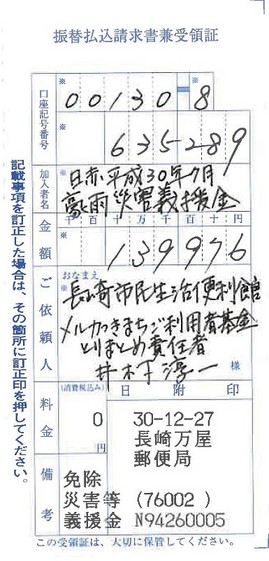 振替払込請求書兼受領証
口座記号番号
※ 00130 - 8
※ 635289
加入者名
※ 日赤平成30年7月
豪雨災害義援金
金額
千 百 十 万 千 百 十 円
※ 139976
ご依頼人
おなまえ
※
長崎市民生活便利館
メルカつきまちご利用者基金
とりまとめ責任者
井木下淳一
様
料金
(消費税込み)
0
円
日附印
30-12-27
長崎万屋
郵便局
備考
免除
災害等 (76002 )
義援金 N94260005
この受領証は、大切に保管してください。
記載事項を訂正した場合は、その箇所に訂正印を押してください。